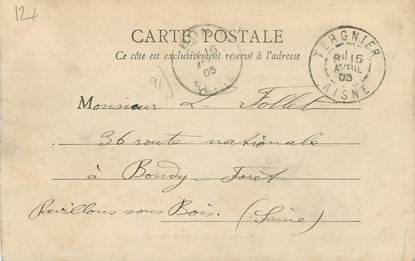 12f
CARTE POSTALE
Ce côté est exclusivement réservé à l'adresse
16
03
SEINE
TERGNIER
15
AVRIL
03
AISNE
91)
Monsieur L. Follet
36 route nationale
à Bondy-Forêt
Pavillons sous Bois. (Seine)